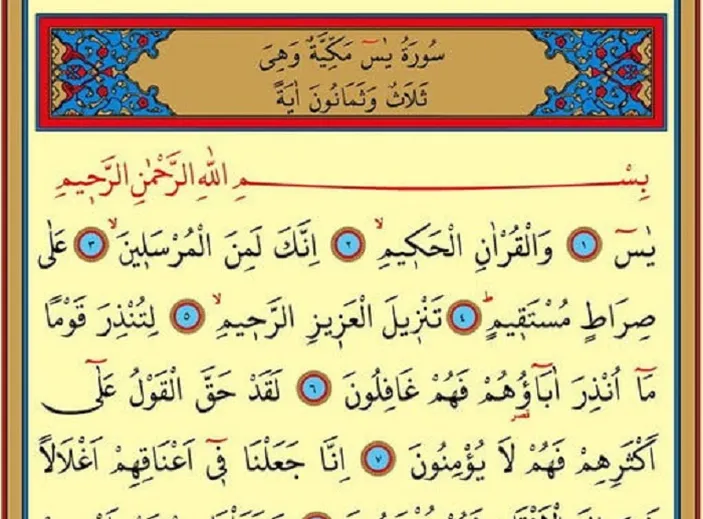 سُورَةُ يٰسٓ مَكِّيَّةٌ وَهِىَ
ثَلَاثٌ وَثَمَانُونَ اٰيَةً
بِسْمِ اللّٰهِ الرَّحْمٰنِ الرَّح۪يمِ
يٰسٓ ﴿١﴾ وَالْقُرْاٰنِ الْحَك۪يمِۙ ﴿٢﴾ اِنَّكَ لَمِنَ الْمُرْسَل۪ينَۙ ﴿٣﴾ عَلٰى
صِرَاطٍ مُسْتَق۪يمٍۜ ﴿٤﴾ تَنْز۪يلَ الْعَز۪يزِ الرَّح۪يمِۙ ﴿٥﴾ لِتُنْذِرَ قَوْمًا
مَٓا اُنْذِرَ اٰبَٓاؤُ۬هُمْ فَهُمْ غَافِلُونَ ﴿٦﴾ لَقَدْ حَقَّ الْقَوْلُ عَلٰٓى
اَكْثَرِهِمْ فَهُمْ لَا يُؤْمِنُونَ ﴿٧﴾ اِنَّا جَعَلْنَا ف۪ٓى اَعْنَاقِهِمْ اَغْلَالًا